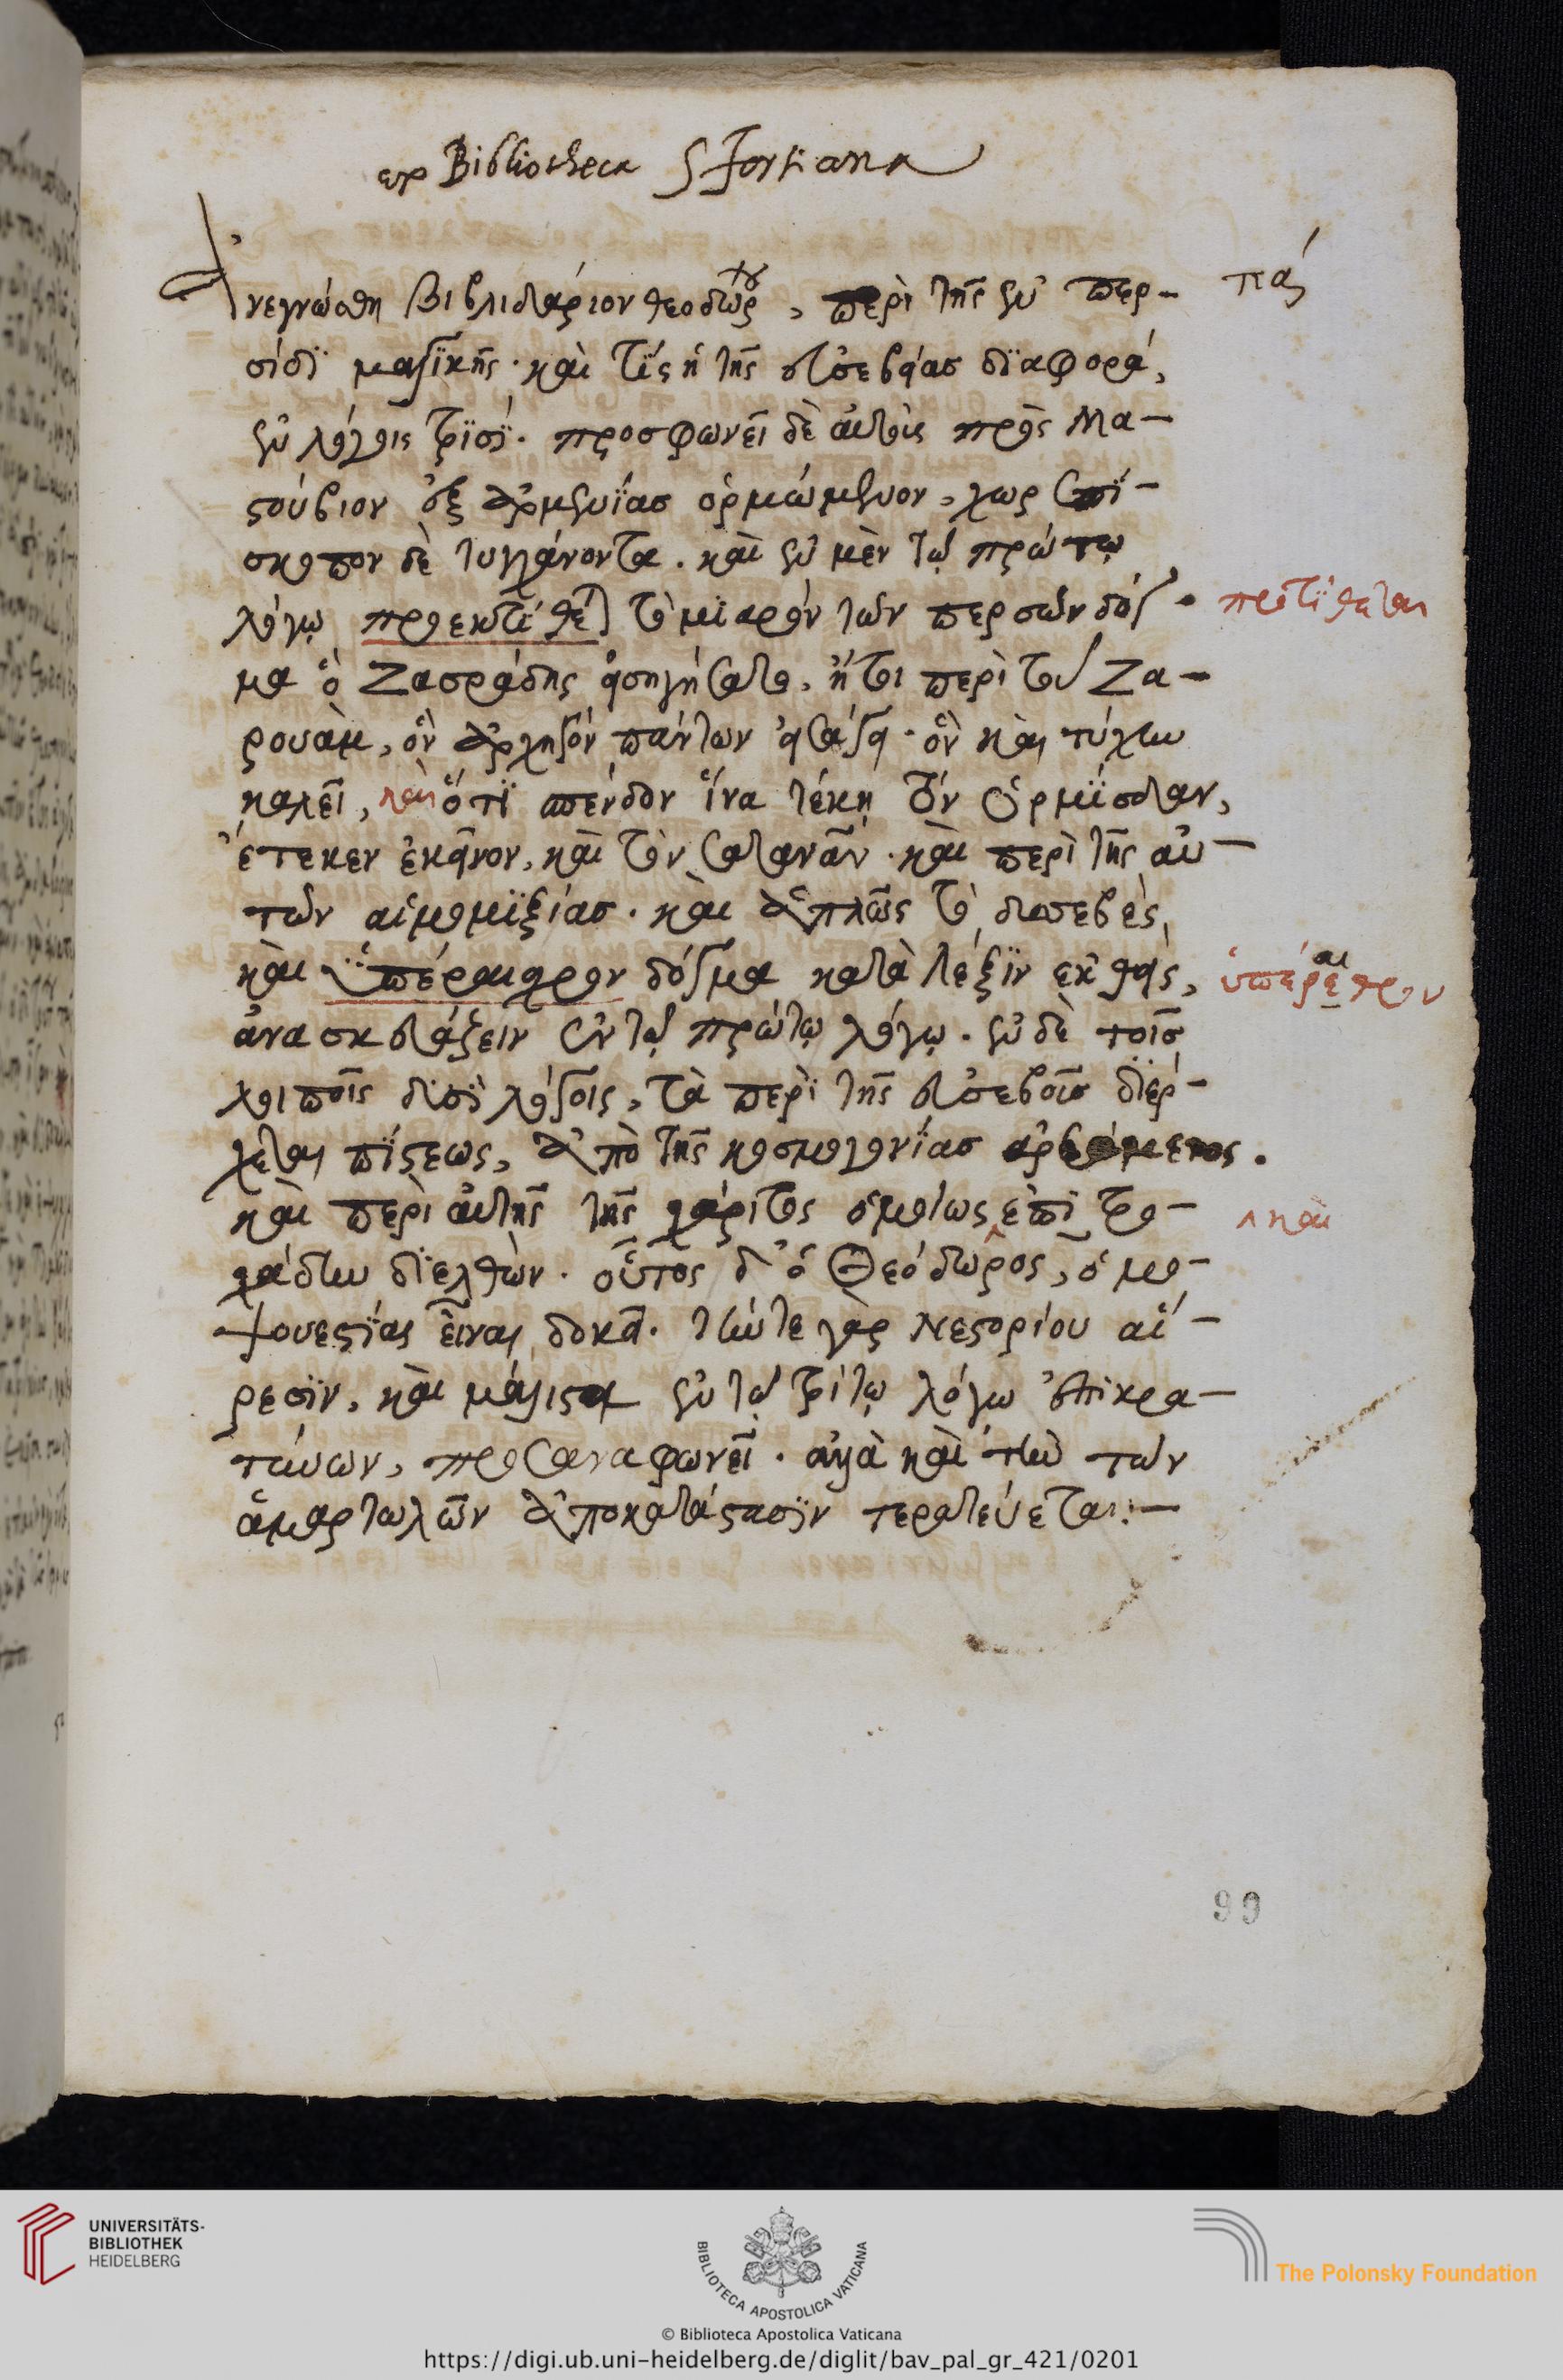 ex Bibliotheca Sfortiana
Ἀνεγνώσθη βιβλιδάριον θεοδώρου, περὶ τῆς ἐν περ-
πα
σίδι μαγικῆς· καὶ τίς ἡ τῆς εὐσεβείας διαφορά,
ἐν λόγοις τρισί· προσφωνεῖ δὲ αὐτοὺς πρὸς Μα-
στούβιον ἐξ ἀρμενίας ὁρμώμενον, χωρεπί-
σκοπον δὲ τυγχάνοντα. καὶ ἐν μὲν τῷ πρώτῳ
λόγῳ προεκτίθεται τὸ μιαρὸν τῶν περσῶν δόγ-
προτίθεται
μα ὃ Ζασράδης εἰσηγήσατο, ἤτοι περὶ τοῦ Ζα-
ρουάμ, ὃν ἀρχηγὸν πάντων εἰσάγει· ὃν καὶ τύχην
καλεῖ, καὶ ὅτι σπένδων ἵνα τέκῃ τὸν Ὁρμίσδαν,
ἔτεκεν ἐκεῖνον, καὶ τὸν Σατανᾶν· καὶ περὶ τῆς αὐ-
τῶν αἱμομιξίας. καὶ ἁπλῶς τὸ δυσσεβὲς,
καὶ ὑπέραισχρον δόγμα κατὰ λέξιν ἐκθεὶς,
ὑπέρεσχρον
αι
ἀνασκευάζειν ἐν τῷ πρώτῳ λόγῳ. ἐν δὲ τοῖς
λοιποῖς δυσὶ λόγοις, τὰ περὶ τῆς εὐσεβοῦς διέρ-
χεται πίστεως, ἀπὸ τῆς κοσμογονίας ἀρξάμενος.
καὶ περὶ αὐτῆς τῆς χάριτος ὁμοίως ἐπὶ τρο-
^ καὶ
χάδην διελθών. οὗτος δ' ὁ Θεόδωρος, ὁ μο-
ψουεστίας εἶναι δοκεῖ. τήντε γὰρ Νεστορίου αἵ-
ρεσιν, καὶ μάλιστα ἐν τῷ τρίτῳ λόγῳ ἐπικρα-
τύνων, προσαναφωνεῖ. ἀλλὰ καὶ τὴν τῶν
ἁμαρτωλῶν ἀποκατάστασιν τερατεύεται:-
99
UNIVERSITÄTS-
BIBLIOTHEK
HEIDELBERG
BIBLIOTECA APOSTOLICA VATICANA
The Polonsky Foundation
© Biblioteca Apostolica Vaticana
https://digi.ub.uni-heidelberg.de/diglit/bav_pal_gr_421/0201